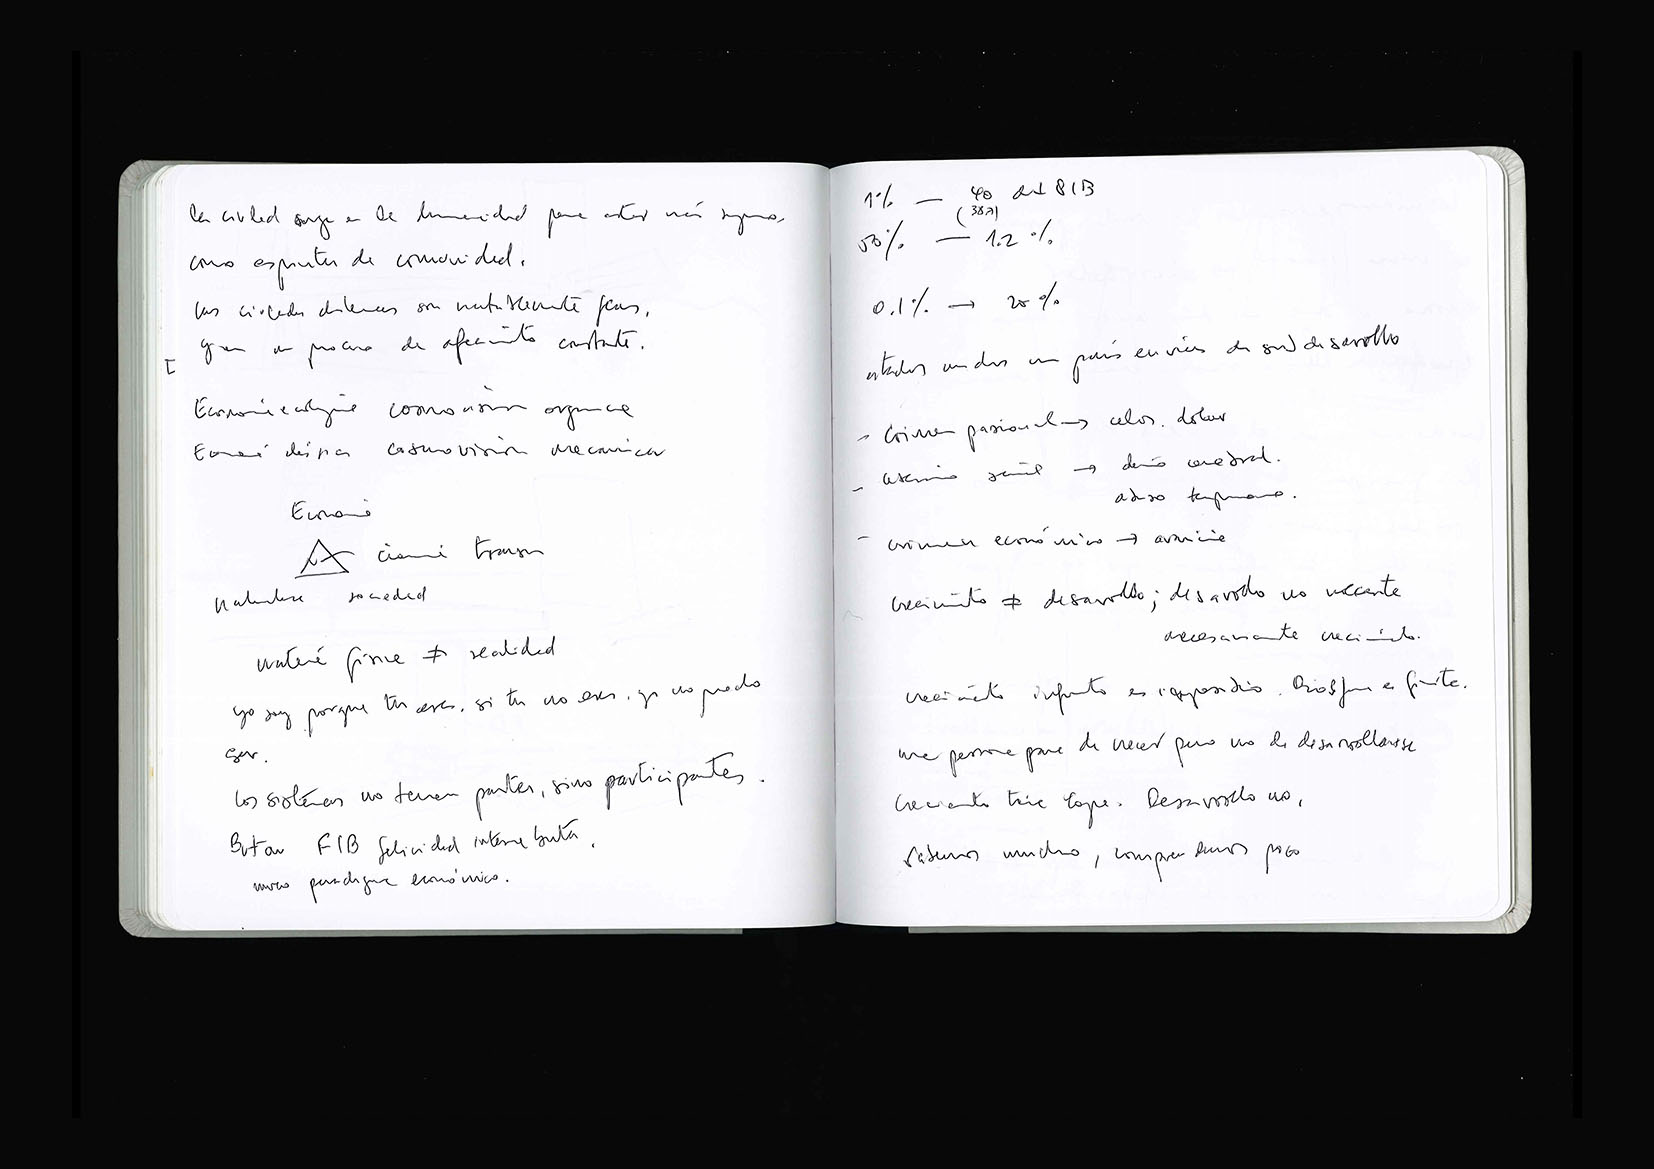 la ciudad surge en la humanidad para estar más seguros,
como espíritu de comunidad.
las ciudades chilenas son notablemente feas,
y en un proceso de afeamiento constante.
[
Economía ecológica cosmovisión orgánica
Economía clásica cosmovisión mecánica
Economía
ciencia transm
naturaleza sociedad
materia física ≠ realidad
yo soy porque tu eres. si tu no eres, yo no puedo
ser.
los sistemas no tienen partes, sino participantes.
Butan FIB felicidad interna bruta,
nuevo paradigma económico.
1% — 40 del PIB
50% — 1.2 %
0.1% → 20 %
estados unidos un país en vías de sub desarrollo
- Crimen pasional → celos. dolor
- → daño cerebral.
abuso temprano.
- crimen económico → avaricia
crecimiento ≠ desarrollo; desarrollo no necesita
necesariamente crecimiento.
crecimiento infinito es imposible. Biosfera es finita.
una persona para de crecer pero no de desarrollarse
Crecimiento tiene tope. Desarrollo no,
sabemos mucho, comprendemos poco